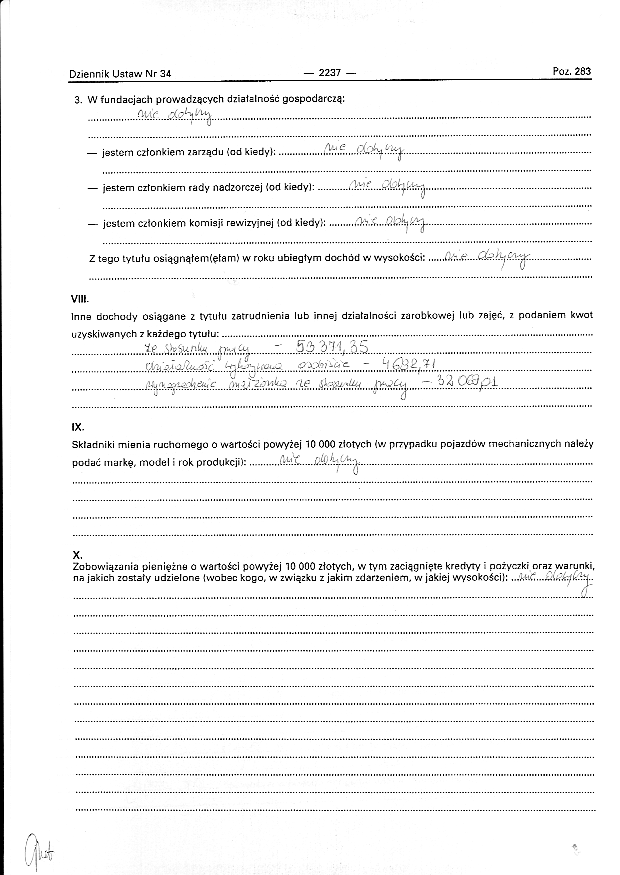 Dziennik Ustaw Nr 34 — 2237 — Poz. 283
3. W fundacjach prowadzących działalność gospodarczą:
nie dotyczy
— jestem członkiem zarządu (od kiedy): nie dotyczy
— jestem członkiem rady nadzorczej (od kiedy): nie dotyczy
— jestem członkiem komisji rewizyjnej (od kiedy): nie dotyczy
Z tego tytułu osiągnąłem(ęłam) w roku ubiegłym dochód w wysokości: nie dotyczy
VIII.
Inne dochody osiągane z tytułu zatrudnienia lub innej działalności zarobkowej lub zajęć, z podaniem kwot
uzyskiwanych z każdego tytułu:
ze stosunku pracy - 53371,35
działalność wykonywana osobiście - 4632,71
wynagrodzenie małżonka ze stosunku pracy -
IX.
Składniki mienia ruchomego o wartości powyżej 10 000 złotych (w przypadku pojazdów mechanicznych należy
podać markę, model i rok produkcji): nie dotyczy
X.
Zobowiązania pieniężne o wartości powyżej 10 000 złotych, w tym zaciągnięte kredyty i pożyczki oraz warunki,
na jakich zostały udzielone (wobec kogo, w związku z jakim zdarzeniem, w jakiej wysokości): nie dotyczy